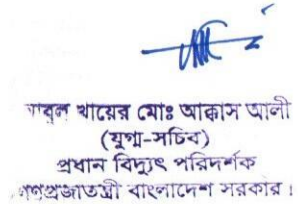 আবুল খায়ের মোঃ আক্কাস আলী
(যুগ্ম-সচিব)
প্রধান বিদ্যুৎ পরিদর্শক
গণপ্রজাতন্ত্রী বাংলাদেশ সরকার।